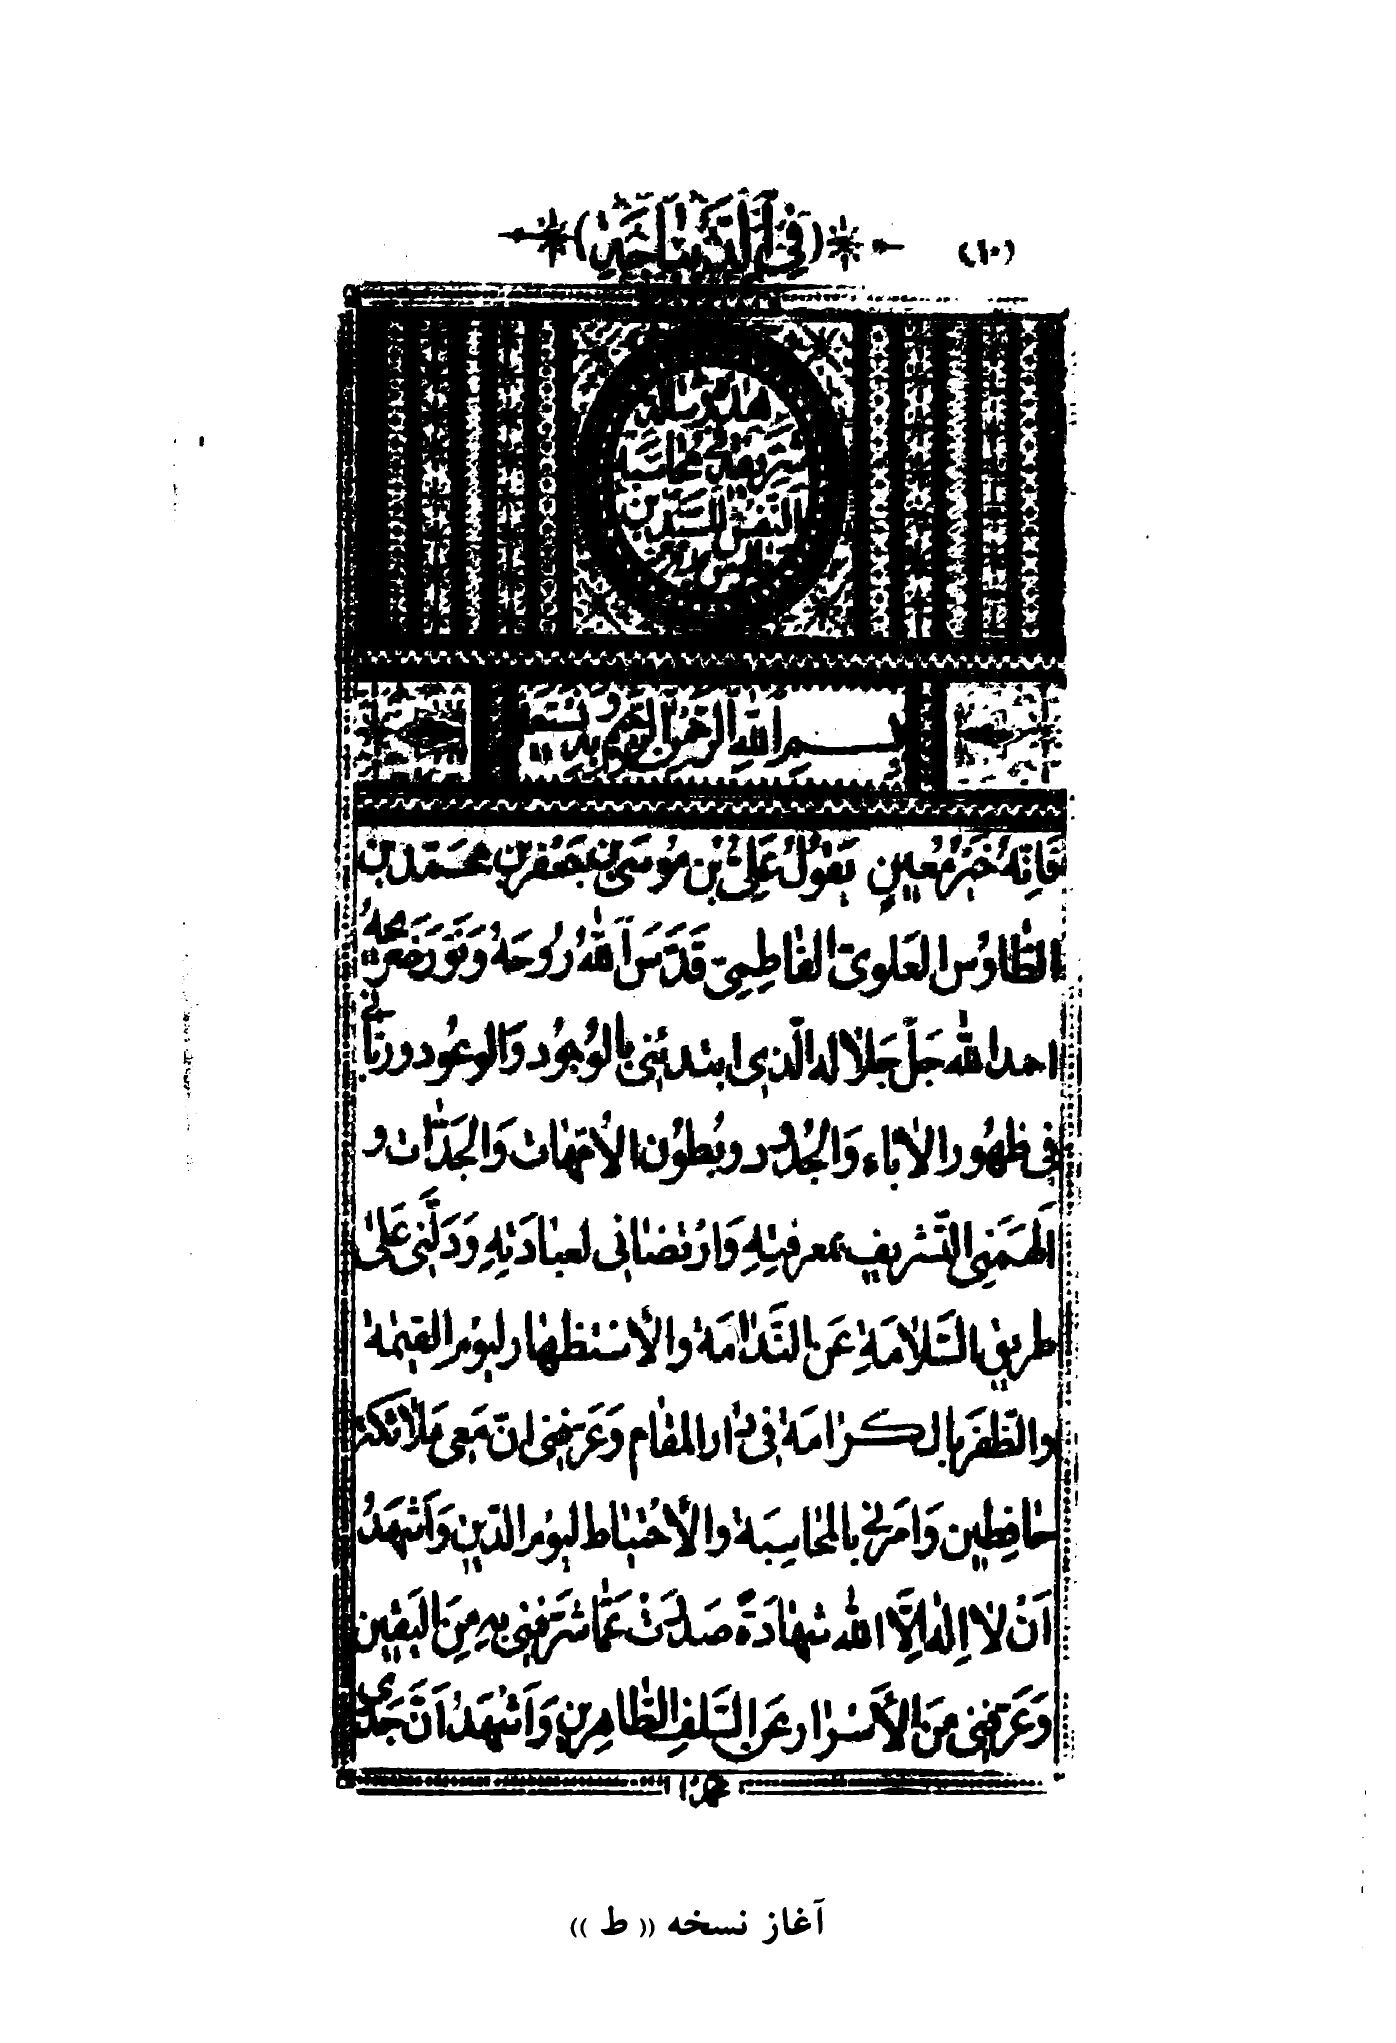 (١٠)
(في الديباجة)
هذه رسالة
شريفة في محاسبة
النفس للسيد بن
طاوس
بسم الله الرحمن الرحيم وبه نستعين
فَاِنَّهُ خَيْرُ مُعينٍ يَقُولُ عَلِىُّ بْنِ مُوسَى بْنِ جَعْفَرِ بْنِ مُحَمَّدِ بْنِ
الطّاوُسِ العَلَوِىّ الفاطِمِىّ قَدَّسَ اَللهُ رُوحَهُ وَنَوَّرَ ضَريحَهُ
احمد الله جَلَّ جَلالَه الَّذى ابتدئنى بالوُجُود وَالوعُود وربّانى
فى ظهُور الاٰباء وَالجُدُود وبُطوُن الاُمّهاٰت وَالجَدّات و
اَلهَمَنِى التَّشريف بمعرفتِهِ وَارْتضانى لعبادَتِهِ وَدَلَّنى عَلىٰ
طريق السَّلامَةِ عَن النَّدامَة والأستظهار ليَوْم القيٰمة
والظَّفَر بالكرامَة فى دار المقام وَعَرّفنى انّ مَعى ملائكة
حافِظين وَامَرنى بالمحاسِبَة والأحْتياط ليوْم الدّين وَاَشْهَدُ
اَنْ لا اِلهَ اِلَّا الله شهادَةً صَدَرَتْ عَمّا شَرّفنى بِهِ مِنَ اليَقين
وَعَرّفنى مَن الأسْرار عَن السَّلَفِ الطّاهِرين وَاَشْهَدُ اَنَّ جَدّى
محمدا
آغاز نسخه (( ط ))